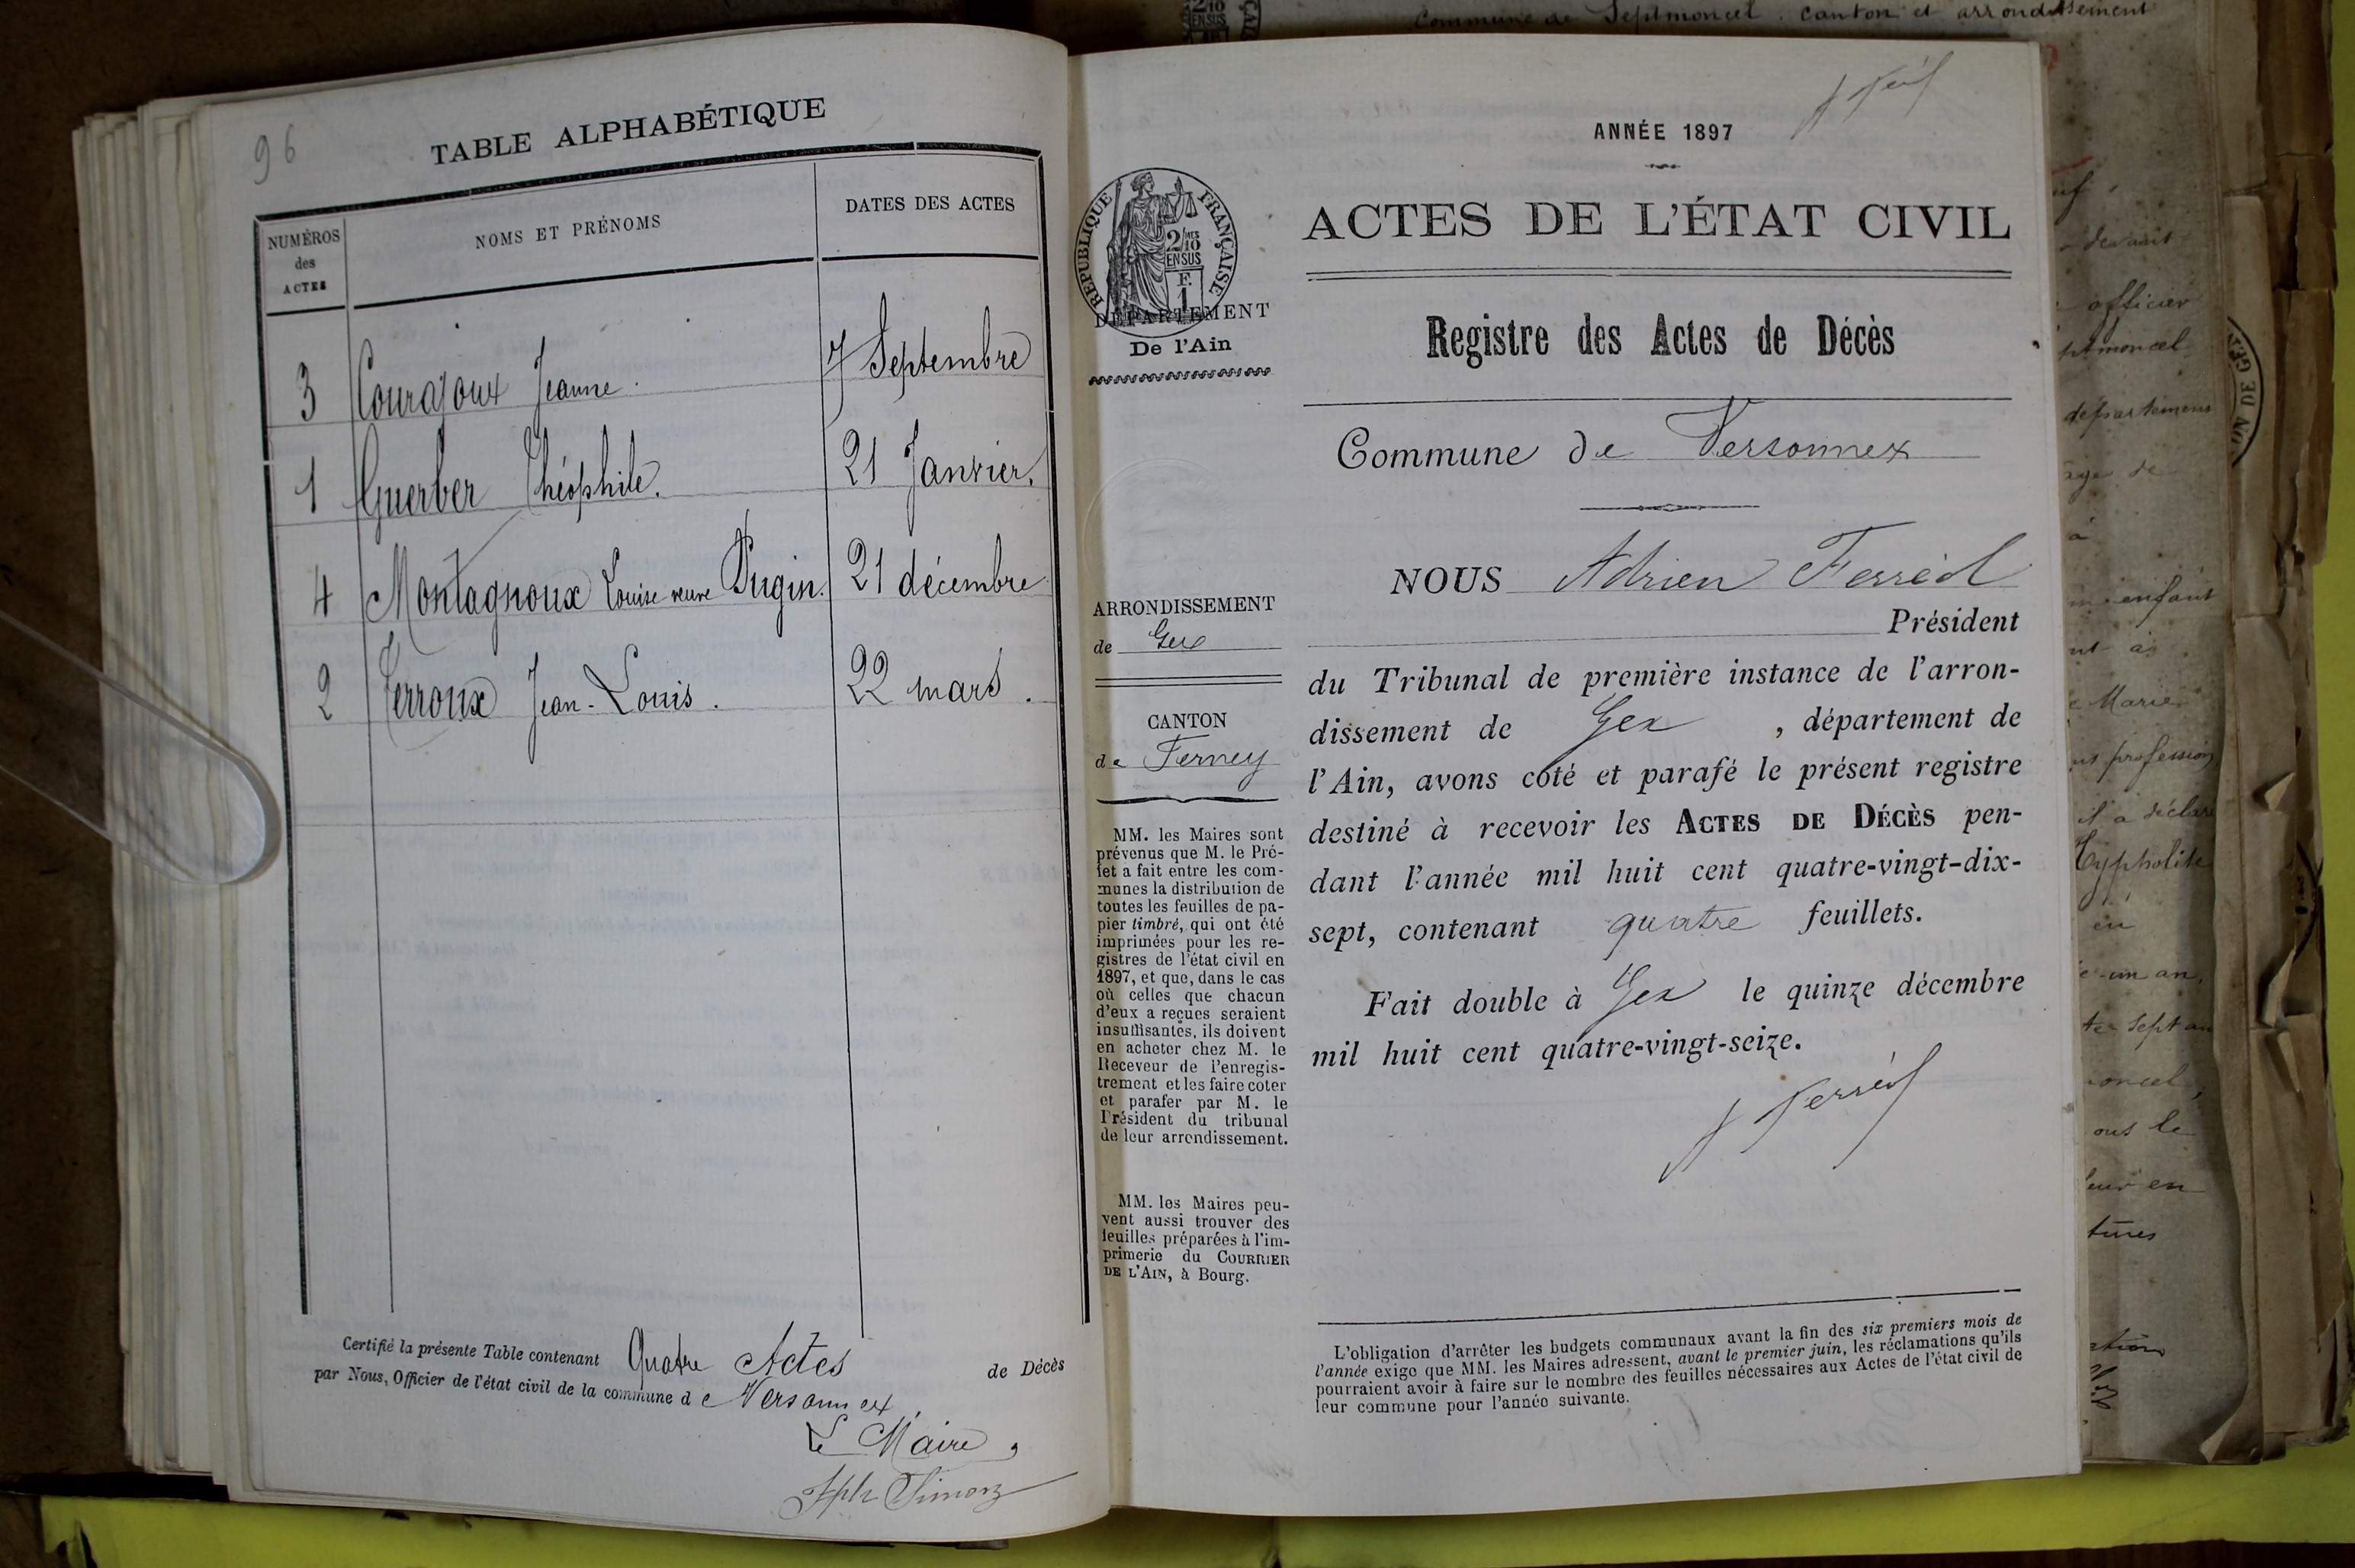 96
TABLE ALPHABÉTIQUE
NUMÉROS des ACTES
NOMS ET PRÉNOMS
DATES DES ACTES
3 Courajoux Jeanne. 7 Septembre
1 Guerber Théophile. 21 Janvier.
4 Montagnoux Louise veuve Pugin. 21 décembre
2 Ferroux Jean-Louis. 22 mars.
Certifié la présente Table contenant Quatre Actes de Décès
par Nous, Officier de l'état civil de la commune de Versonnex,
Le Maire,
ANNÉE 1897
RÉPUBLIQUE FRANÇAISE
2/10 EN SUS
F. 1
DÉPARTEMENT
De l'Ain
ACTES DE L'ÉTAT CIVIL
Registre des Actes de Décès
Commune de Versonnex
ARRONDISSEMENT
de Gex
CANTON
de Ferney
MM. les Maires sont
prévenus que M. le Pré-
fet a fait entre les com-
munes la distribution de
toutes les feuilles de pa-
pier timbré, qui ont été
imprimées pour les re-
gistres de l'état civil en
1897, et que, dans le cas
où celles que chacun
d'eux a reçues seraient
insuffisantes, ils doivent
en acheter chez M. le
Receveur de l'enregis-
trement et les faire coter
et parafer par M. le
Président du tribunal
de leur arrondissement.
MM. les Maires peu-
vent aussi trouver des
feuilles préparées à l'im-
primerie du COURRIER
DE L'AIN, à Bourg.
NOUS Adrien Ferréol
Président
du Tribunal de première instance de l'arron-
dissement de Gex, département de
l'Ain, avons coté et parafé le présent registre
destiné à recevoir les ACTES DE DÉCÈS pen-
dant l'année mil huit cent quatre-vingt-dix-
sept, contenant quatre feuillets.
Fait double à Gex le quinze décembre
mil huit cent quatre-vingt-seize.
L'obligation d'arrêter les budgets communaux avant la fin des six premiers mois de
l'année exige que MM. les Maires adressent, avant le premier juin, les réclamations qu'ils
pourraient avoir à faire sur le nombre des feuilles nécessaires aux Actes de l'état civil de
leur commune pour l'année suivante.
Commune de Septmoncel. canton et arrondissement
devant
officier
département
enfant
Marie
profession
il a déclaré
un an,
sept an